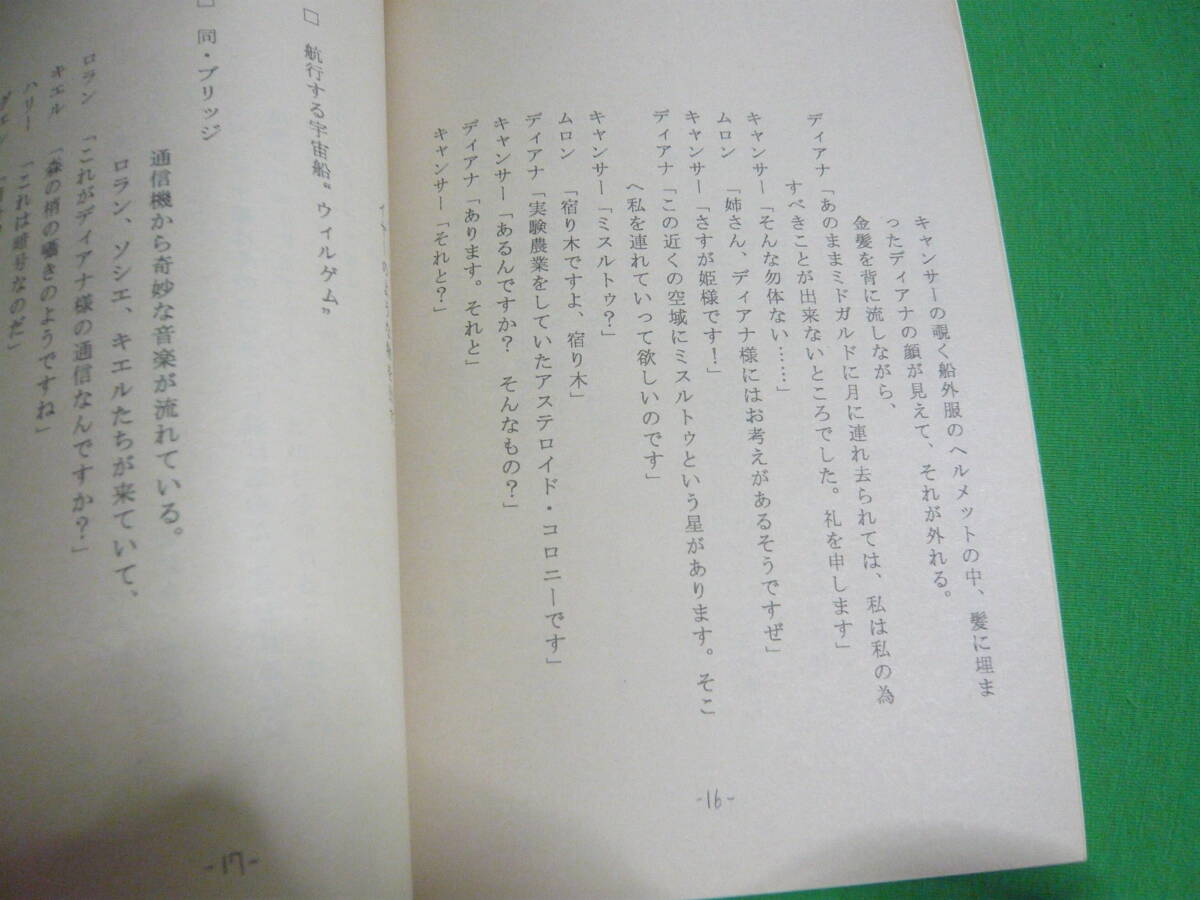 キャンサーの覗く船外服のヘルメットの中、髪に埋ま
ったディアナの顔が見えて、それが外れる。
金髪を背に流しながら、
ディアナ「あのままミドガルドに月に連れ去られては、私は私の為
すべきことが出来ないところでした。礼を申します」
キャンサー「そんな勿体ない……」
ムロン「姉さん、ディアナ様にはお考えがあるそうですぜ」
キャンサー「さすが姫様です！」
ディアナ「この近くの空域にミスルトゥという星があります。そこ
へ私を連れていって欲しいのです」
キャンサー「ミスルトゥ？」
ムロン「宿り木ですよ、宿り木」
ディアナ「実験農業をしていたアステロイド・コロニーです」
キャンサー「あるんですか？ そんなもの？」
ディアナ「あります。それと」
キャンサー「それと？」
-16-
□ 航行する宇宙船〝ウィルゲム〟
□ 同・ブリッジ
通信機から奇妙な音楽が流れている。
ロラン、ソシエ、キエルたちが来ていて、
ロラン「これがディアナ様の通信なんですか？」
キエル「森の梢の囁きのようですね」
ハリー「これは暗号なのだ」
-17-